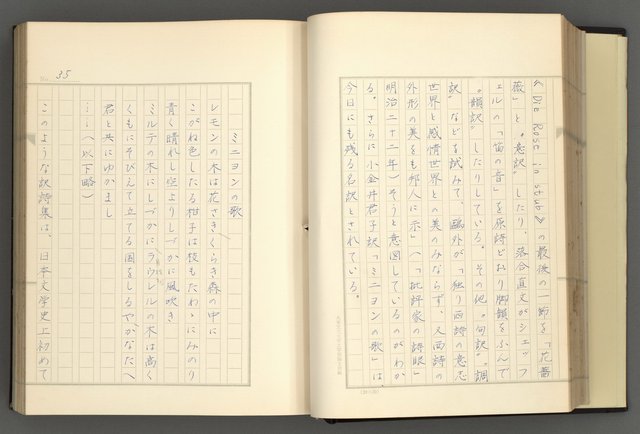 《Die Rose in staub》の最後の一節を「花薔
薇」と〝意訳〟したり、落合直文がシェッフ
ェルの「笛の音」を原詩どおり脚韻をふんで
〝韻訳〟したりしている。その他〝句訳〟〝調
訳〟などを試みて、鷗外が「独り西詩の意志
世界と感情世界との美のみならず、又西詩の
外形の美をも邦人に示」へ「批評家の詩眼」
明治二十二年）そうと意図しているのがわか
る。さらに小金井君子訳「ミニヨンの歌」は、
今日にも残る名訳とされている。
35
ミニヨンの歌
レモンの木は花さきくらき森の中に
こがね色したる柑子は枝もたわゝにみのり
青く晴れし空よりしづかに風吹き
ミルテの木はしづかにラウレルの木は高く
くもにそびえて立てる国をしるやかなたへ
君と共にゆかまし
……（以下略）
このような訳詩集は、日本文学史上初めて